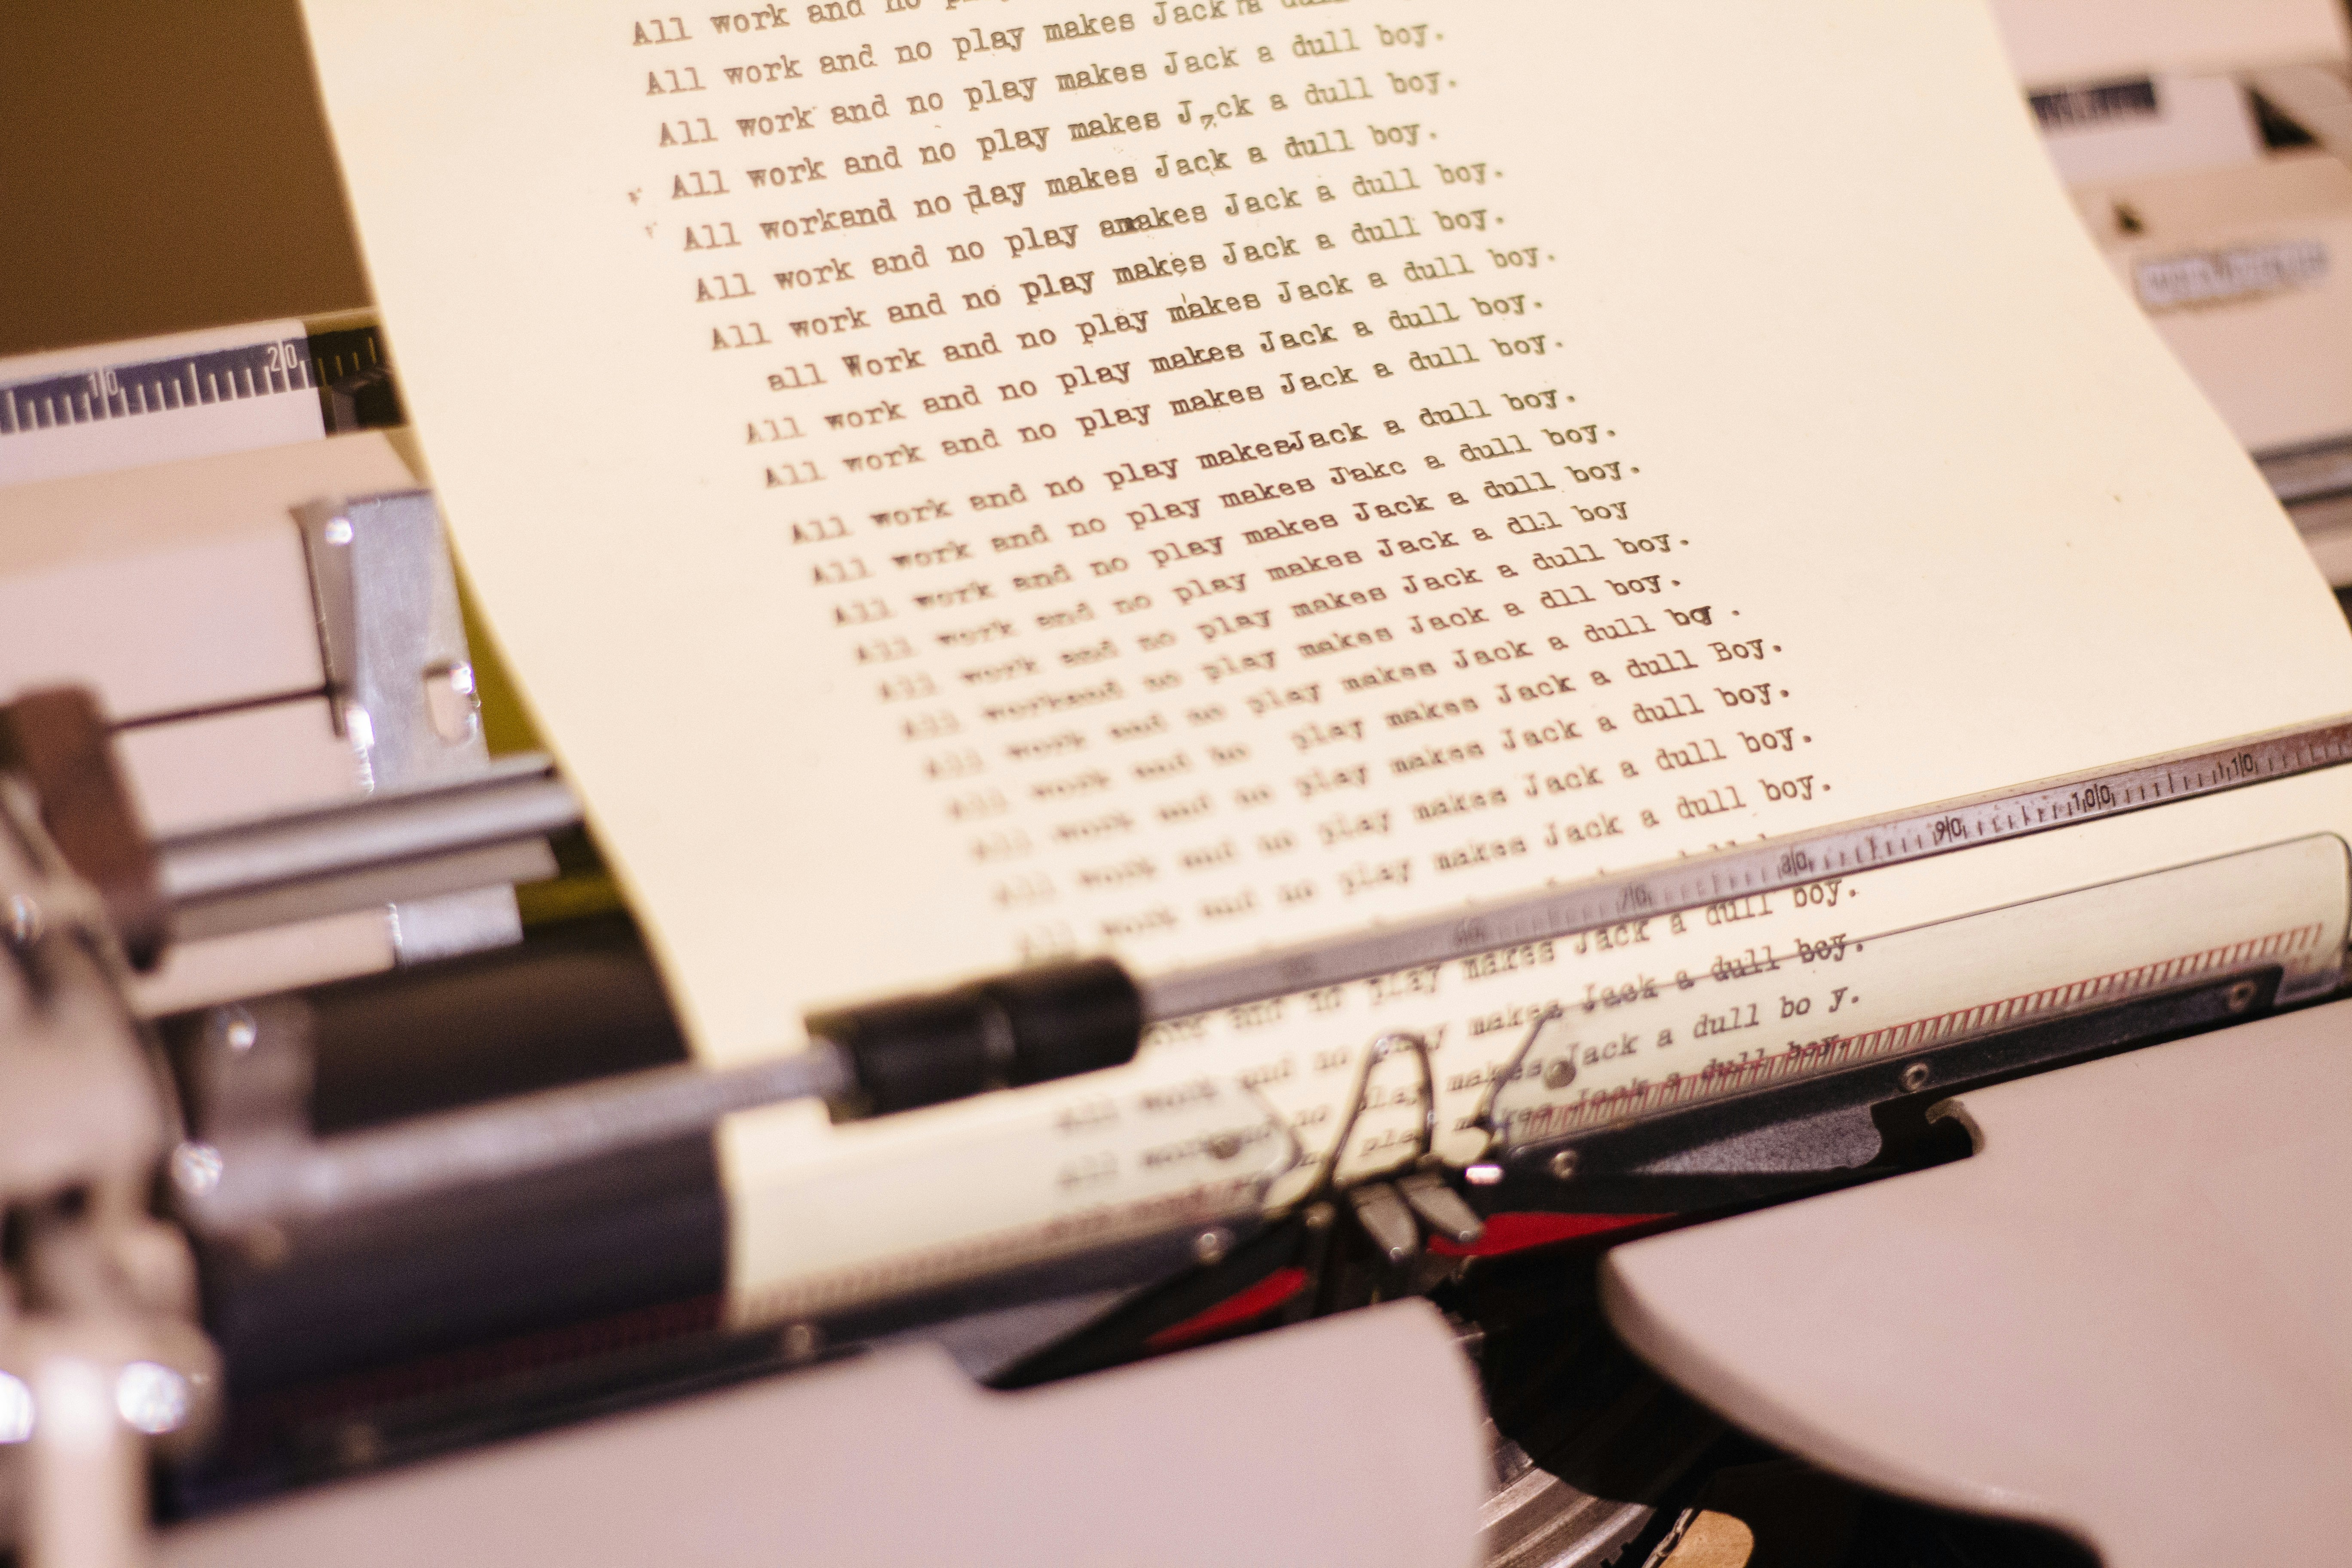 All work and no
All work and no play makes Jack a dull
All work and no play makes Jack a dull boy.
All work and no play makes J7ck a dull boy.
All workand no play makes Jack a dull boy.
All work and no play amakes Jack a dull boy.
All work and no play makes Jack a dull boy.
all Work and no play makes Jack a dull boy.
All work and no play makes Jack a dull boy.
All work and no play makes Jack a dull boy.
All work and no play makesJack a dull boy.
All work and no play makes Jakc a dull boy.
All work and no play makes Jack a dull boy.
All work and no play makes Jack a dll boy
All work and no play makes Jack a dull boy.
All workand no play makes Jack a dll boy.
All work and no play makes Jack a dull boy .
All work and no play makes Jack a dull Boy.
All work and no play makes Jack a dull boy.
All work and no play makes Jack a dull boy.
All work and no play makes Jack a dull boy.
and no play makes Jack a dull boy.
All work and no play makes Jack a dull boy.
All work and no play makes Jack a dull bo y.
play makes Jack a dull boy.
10 20
70 80 90 100 110